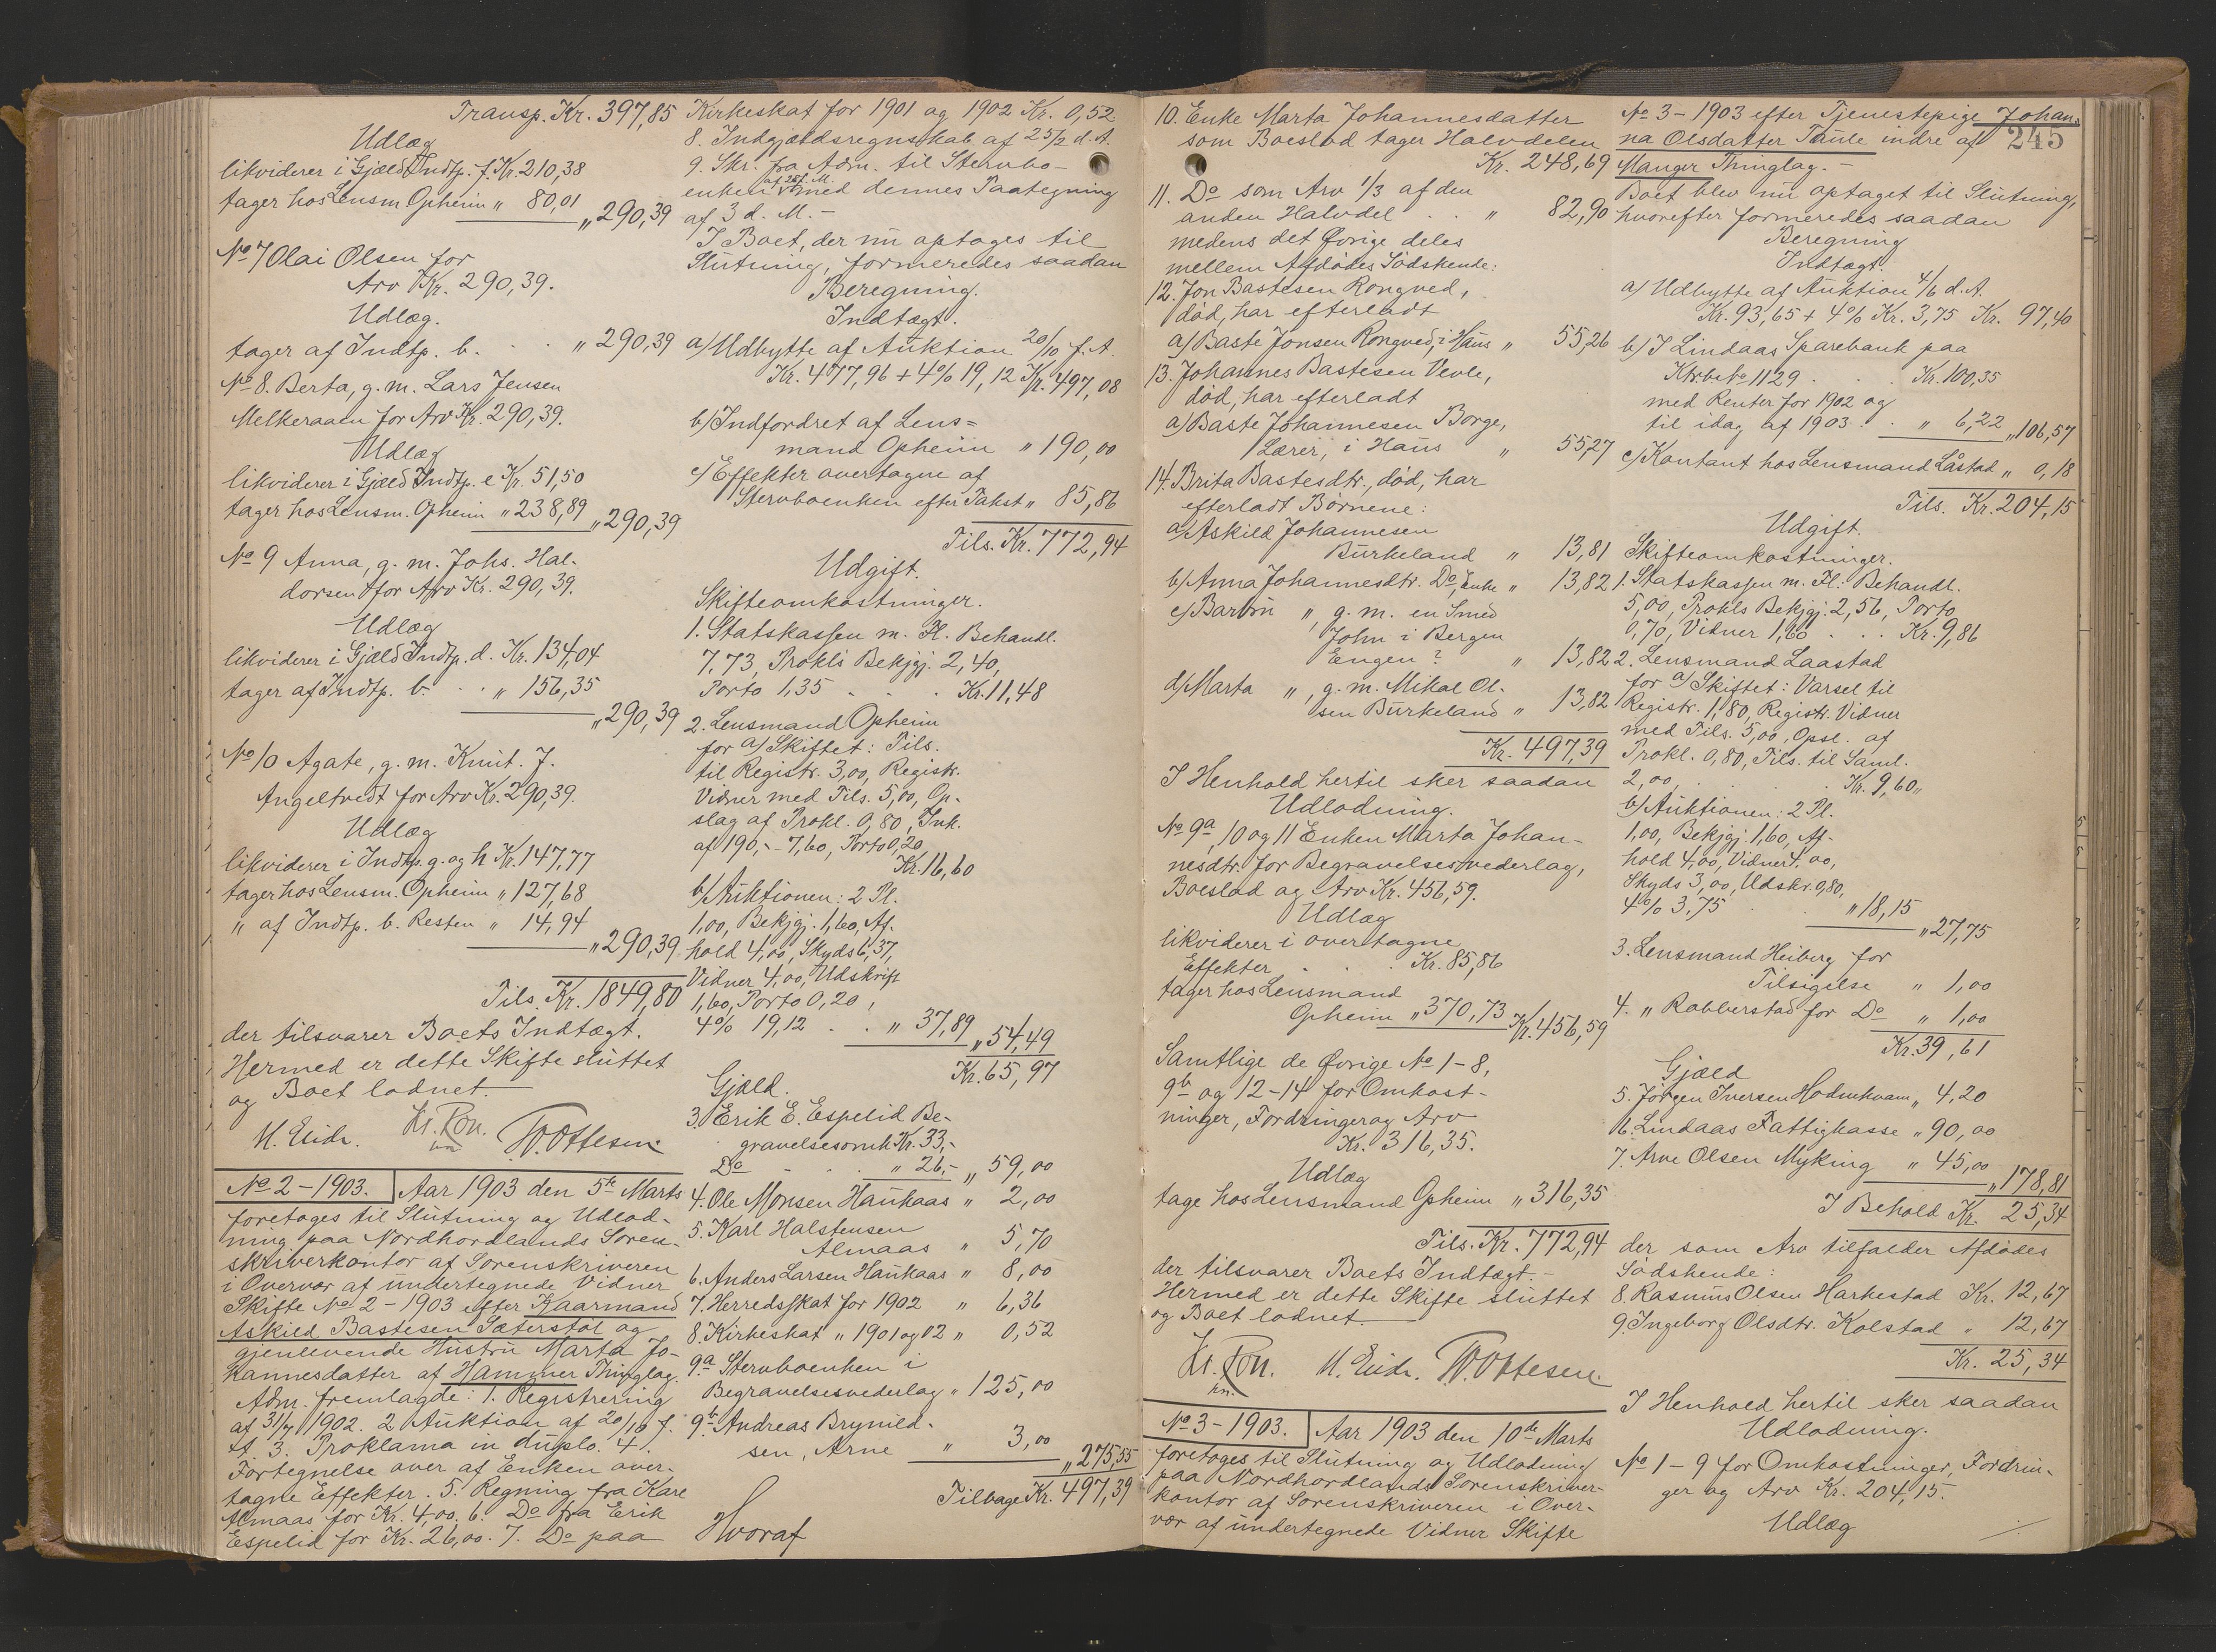 Transp. Kr. 397,85
Udlæg
likviderer i Gjæld Indtp. f. Kr. 210,38
tager hos Lensm. Opheim " 80,01
" 290,39
No 7 Olai Olsen for
Arv Kr. 290,39.
Udlæg.
tager af Indtp. b. . . " 290,39
No 8. Berta, g. m. Lars Jensen
Melkeraaen for Arv Kr. 290,39.
Udlæg
likviderer i Gjæld Indtp. e Kr. 51,50
tager hos Lensm. Opheim " 238,89
" 290,39
No 9 Anna, g. m. Johs. Hal-
dorsen for Arv Kr. 290,39.
Udlæg
likviderer i Gjæld Indtp. d. Kr. 134,04
tager af Indtp. b. . . " 156,35
" 290,39
No 10 Agate, g. m. Knut. J.
Angeltvedt for Arv Kr. 290,39.
Udlæg
likviderer i Indtp. g. og h Kr. 147,77
tager hos Lensm. Opheim " 127,68
" af Indtp. b. Resten " 14,94
" 290,39
Tils. Kr. 1849,80
der tilsvarer Boets Indtægt.
Hermed er dette Skifte sluttet
og Boet lodnet.
M. Eide. Kr. Ron. W. Ottesen.
No 2 – 1903. Aar 1903 den 5te Marts
foretoges til Slutning og Udlod-
ning paa Nordhordlands Soren-
skriverkontor af Sorenskriveren
i Overvær af undertegnede Vidner
Skifte No 2 – 1903 efter Kaarmand
Askild Bastesen Sæterstøl og
gjenlevende Hustru Marta Jo-
hannesdatter af Hammer Thinglag.
Adm. fremlagde: 1. Registrering
af 31/7 1902. 2. Auktion af 20/10 f.
A. 3. Proklama in duplo. 4.
Fortegnelse over af Enken over-
tagne Effekter. 5. Regning fra Karl
Almaas for Kr. 4,00. 6. Do fra Erik
Espelid for Kr. 26,00. 7. Do paa
Kirkeskat for 1901 og 1902 Kr. 0,52
8. Indgjældsregnskab af 25/2 d. A.
9. Skr. fra Adm. til Stervbo-
af 28 f. M.
enken med dennes Paategning
af 3 d. M. –
I Boet, der nu optoges til
Slutning, formeredes saadan
Beregning.
Indtægt.
a) Udbytte af Auktion 20/10 f. A.
Kr. 477,96 + 4% 19,12 Kr. 497,08
b) Indfordret af Lens=
mand Opheim " 190,00
c) Effekter overtagne af
Stervboenken efter Takst " 85,86
Tils. Kr. 772,94
Udgift.
Skifteomkostninger.
1. Statskassen m. Fl. Behandl.
7,73, Prokls Bekjgj. 2,40,
Porto 1,35 . . . Kr. 11,48
2. Lensmand Opheim
for a) Skiftet: Tils.
til Registr. 3,00, Registr.
Vidner med Tils. 5,00, Op-
slag af Prokl. 0,80, Ink.
af 190,- - 7,60, Porto 0,20
Kr. 16,60
b) Auktionen: 2 Pl.
1,00, Bekjgj. 1,60, Af-
hold 4,00, Skyds 6,37,
Vidner 4,00, Udskrift
1,60, Porto 0,20,
4% 19,12 . . " 37,89
" 54,49
Kr. 65,97
Gjæld.
3. Erik E. Espelid Be-
gravelsesomk. Kr. 33,-
Do - . . " 26,- " 59,00
4. Ole Monsen Haukaas " 2,00
5. Karl Halstensen
Almaas " 5,70
6. Anders Larsen Haukaas " 8,00
7. Herredsskat for 1902 " 6,36
8. Kirkeskat " 1901 og 02 " 0,52
9a Stervboenken i
Begravelsesvederlag " 125,00
9b Andreas Brynild-
sen, Arne " 3,00
" 275,55
Tilbage Kr. 497,39
Hvoraf
10. Enke Marta Johannesdatter
som Boeslod tager Halvdelen
Kr. 248,69
11. Do som Arv 1/3 af den
anden Halvdel . . " 82,90
medens det Øvrige deles
mellem Afdødes Sødskende:
12. Jon Bastesen Rongved,
død, har efterladt
a) Baste Jonsen Rongved, i Haus " 55,26
13. Johannes Bastesen Vevle,
død, har efterladt
a) Baste Johannesen Borge,
Lærer, i Haus " 55,27
14. Brita Bastesdtr., død, har
efterladt Børnene:
a) Askild Johannesen
Burkeland " 13,81
b) Anna Johannesdtr. Do, Enke " 13,82
c) Barbru " g. m. en Smed
John i Bergen
Engen? " 13,82
d) Marta ", g. m. Mikal Ol-
sen Burkeland " 13,82
Kr. 497,39
I Henhold hertil sker saadan
Udlodning.
No 9a, 10 og 11 Enken Marta Johan-
nesdtr. for Begravelsesvederlag,
Boeslod og Arv Kr. 456,59.
Udlæg
likviderer i overtagne
Effekter . . . Kr. 85,86
tager hos Lensmand
Opheim " 370,73
Kr. 456,59
Samtlige de Øvrige No 1-8,
9b og 12-14 for Omkost-
ninger, Fordringer og Arv
Kr. 316,35.
Udlæg
tage hos Lensmand Opheim " 316,35
Tils. Kr. 772,94
der tilsvarer Boets Indtægt. –
Hermed er dette Skifte sluttet
og Boet lodnet.
Kr. Ron. M. Eide. W. Ottesen.
No 3 – 1903. Aar 1903 den 10de Marts
foretoges til Slutning og Udlodning
paa Nordhordlands Sorenskriver-
kontor af Sorenskriveren i Over-
vær af undertegnede Vidner Skifte
No 3 – 1903 efter Tjenestepige Johan-
na Olsdatter Taule indre af 245
Manger Thinglag. –
Boet blev nu optaget til Slutning,
hvorefter formeredes saadan
Beregning
Indtægt.
a) Udbytte af Auktion 4/6 d. A.
Kr. 93,65 + 4% Kr. 3,75 Kr. 97,40
b) I Lindaas Sparebank paa
Ktrbo No 1129 . . . Kr. 100,35
med Renter for 1902 og
til idag af 1903 . . " 6,22 " 106,57
c) Kontant hos Lensmand Låstad " 0,18
Tils. Kr. 204,15
Udgift.
Skifteomkostninger.
1. Statskassen m. Fl.: Behandl.
5,00, Prokls Bekjgj. 2,56, Porto
0,70, Vidner 1,60 . . . Kr. 9,86
2. Lensmand Laastad
for a) Skiftet: Varsel til
Registr. 1,80, Registr. Vidner
med Tils. 5,00, Opsl. af
Prokl. 0,80, Tils. til Saml.
2,00 . . . Kr. 9,60
b) Auktionen: 2 Pl.
1,00, Bekjgj. 1,60, Af-
hold 4,00, Vidner 4,00,
Skyds 3,00, Udskr. 0,80,
4% 3,75 . . " 18,15
" 27,75
3. Lensmand Heiberg for
Tilsigelse " 1,00
4. " Rabberstad for Do " 1,00
Kr. 39,61
Gjæld
5. Jørgen Iversen Hodnekvam " 4,20
6. Lindaas Fattigkasse " 90,00
7. Arne Olsen Myking " 45,00
" 178,81
I Behold Kr. 25,34
der som Arv tilfalder Afdødes
Sødskende:
8. Rasmus Olsen Harkestad Kr. 12,67
9. Ingeborg Olsdtr. Kolstad " 12,67
Kr. 25,34
I Henhold hertil sker saadan
Udlodning.
No 1-9 for Omkostninger, Fordrin-
ger og Arv Kr. 204,15.
Udlæg